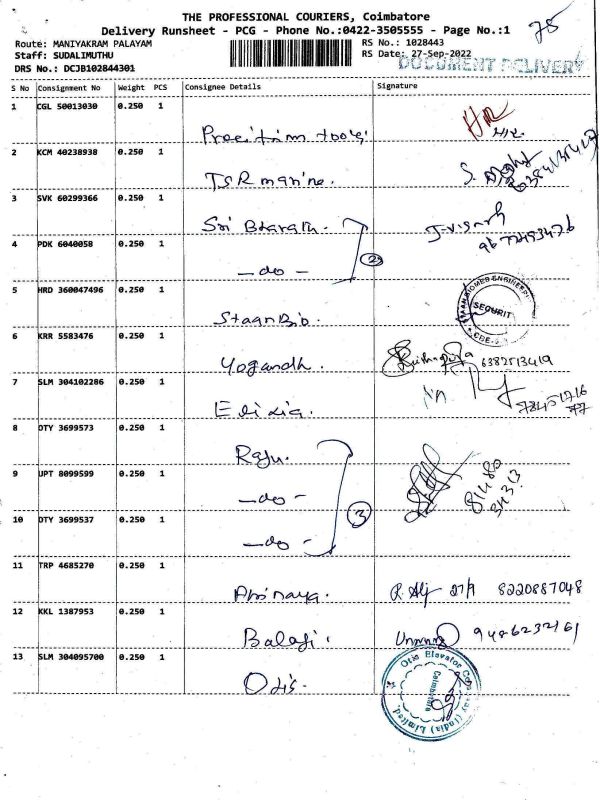 THE PROFESSIONAL COURIERS, Coimbatore
Delivery Runsheet - PCG - Phone No.:0422-3505555 - Page No.:1
75
Route: MANIYAKRAM PALAYAM
RS No.: 1028443
Staff: SUDALIMUTHU
RS Date: 27-Sep-2022
DOCUMENT DELIVERY
DRS No.: DCJB102844301
S No Consignment No Weight PCS Consignee Details Signature
1 CGL 50013030 0.250 1
2 KCM 40238938 0.250 1
TSR marine.
3 SVK 60299366 0.250 1
Sri Bharath.
9677493476
4 PDK 6040058 0.250 1
-do-
2
5 HRD 360047496 0.250 1
StaanBio.
SECURIT
6 KRR 5583476 0.250 1
Yogandh. 6382513419
7 SLM 304102286 0.250 1
Elixia.
8 DTY 3699573 0.250 1
Raju.
9 UPT 8099599 0.250 1
-do-
10 DTY 3699537 0.250 1
-do-
3
11 TRP 4685270 0.250 1
Abinaya. 27/9 8220887048
12 KKL 1387953 0.250 1
Balaji. 9486232161
13 SLM 304095700 0.250 1
Otis.
Otis Elevator Company (India) Limited.
Coimbatore